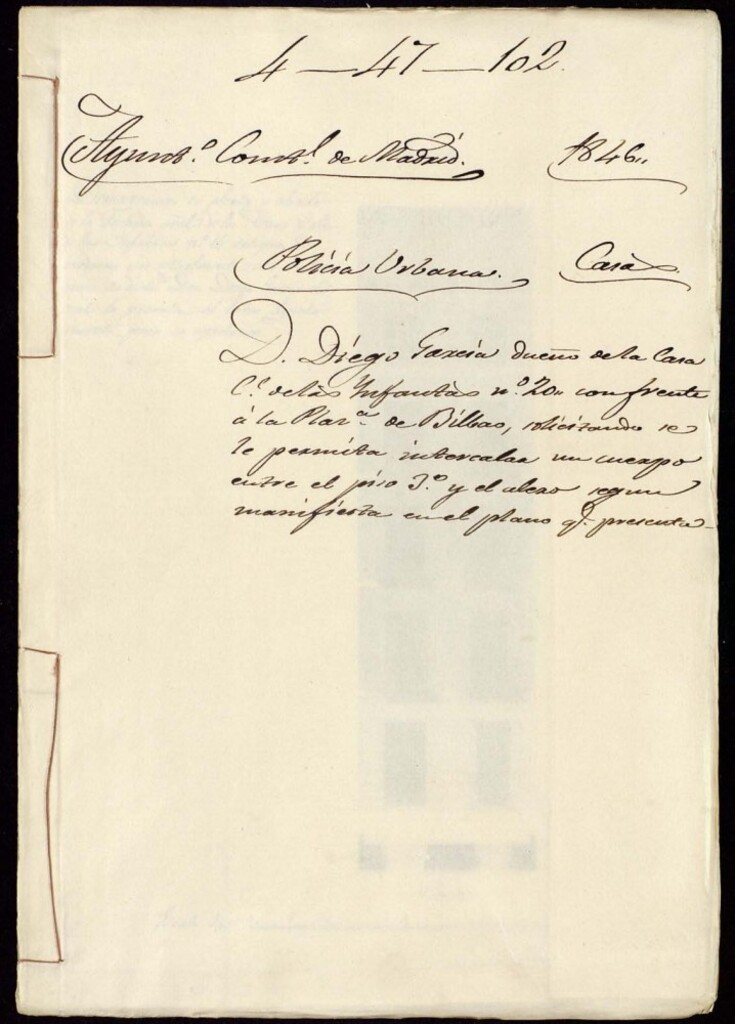 4—47—102.
Ayunt.º Const.l de Madrid. 1846,,
Policía Urbana. Casas.
D. Diego García dueño de la Casa
C.e de las Infantas nº. 20,, con frente
á la Plaz.a de Bilbao, solicitando se
le permita intercalar un cuerpo
entre el piso 3.º y el alero segun
manifiesta en el plano q.e presenta